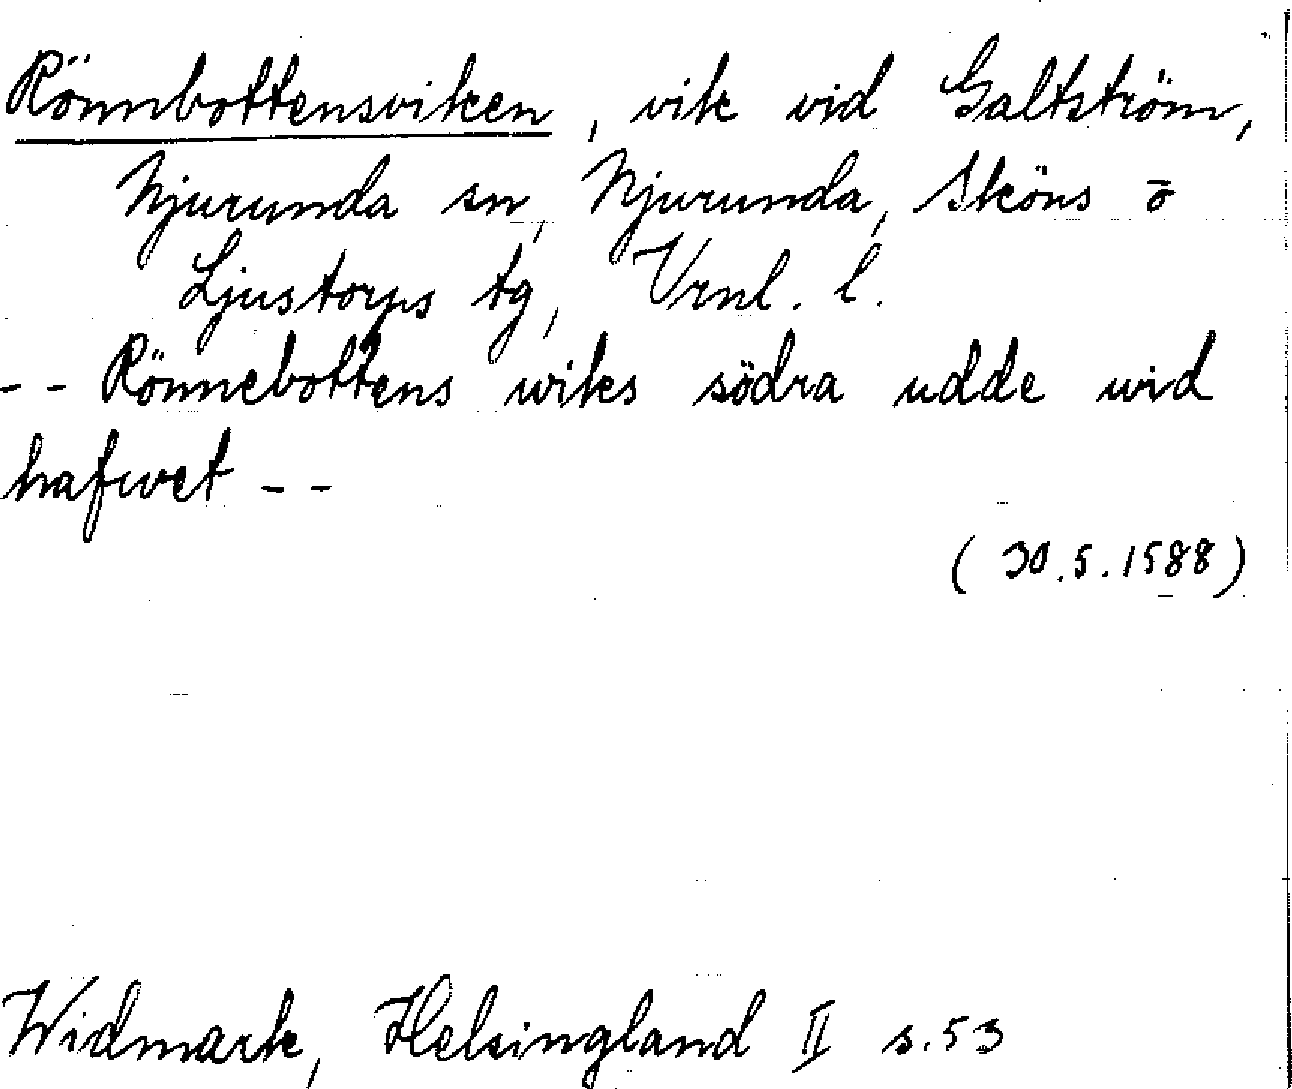 Rönnbottensviken, vik vid Galtström,
Njurunda sn, Njurunda, Sköns o
Ljustorps tg, Vrnl. l.
-- Rönnebottens wiks södra udde wid
hafwet --
(30.5.1588)
Widmark, Helsingland II s.53